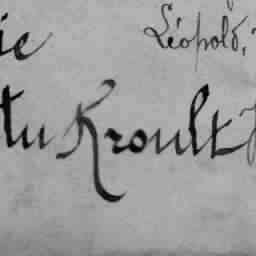 ie Léopold,
tu Kroult